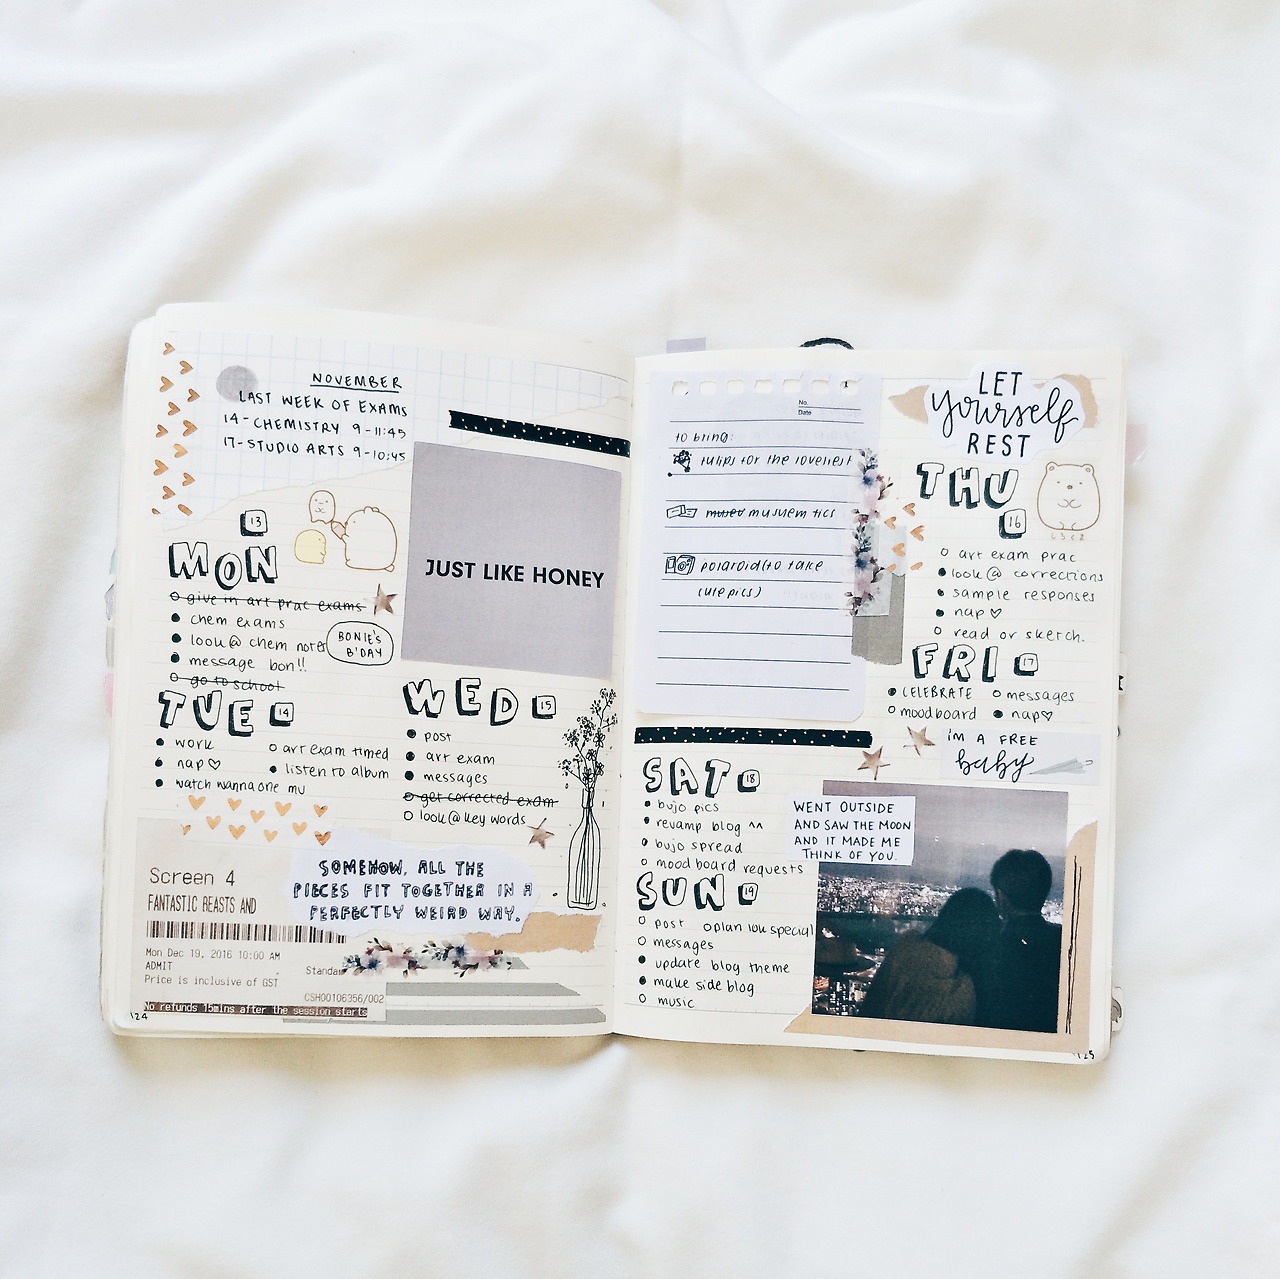 NOVEMBER
LAST WEEK OF EXAMS
14-CHEMISTRY 9-11:45
17-STUDIO ARTS 9-10:45
JUST LIKE HONEY
13
MON
give in art prac exams
chem exams
look@ chem notes
message bon!!
go to school
BONIE'S
B'DAY
TUE 14
work
nap♡
watch wanna one mv
art exam timed
listen to album
WED 15
post
art exam
messages
get corrected exam
look@key words
SOMEHOW, ALL THE
PIECES FIT TOGETHER IN A
PERFECTLY WEIRD WAY.
Screen 4
FANTASTIC BEASTS AND
Mon Dec 19, 2016 10:00 AM
ADMIT
Price is inclusive of GST
Standa
CSH00106356/002
No refunds 15mins after the session starts
124
No.
Date
to bring:
tulips for the loveliest
musuem tics
polaroid (to take
cute pics)
LET
yourself
REST
THU
16
art exam prac
look@ corrections
sample responses
nap♡
read or sketch.
FRI 17
CELEBRATE
messages
moodboard
nap♡
i'M A FREE
baby
SAT 18
bujo pics
revamp blog ^^
bujo spread
mood board requests
SUN 19
post
oplan 10k special
messages
update blog theme
make side blog
music
WENT OUTSIDE
AND SAW THE MOON
AND IT MADE ME
THINK OF YOU.
125